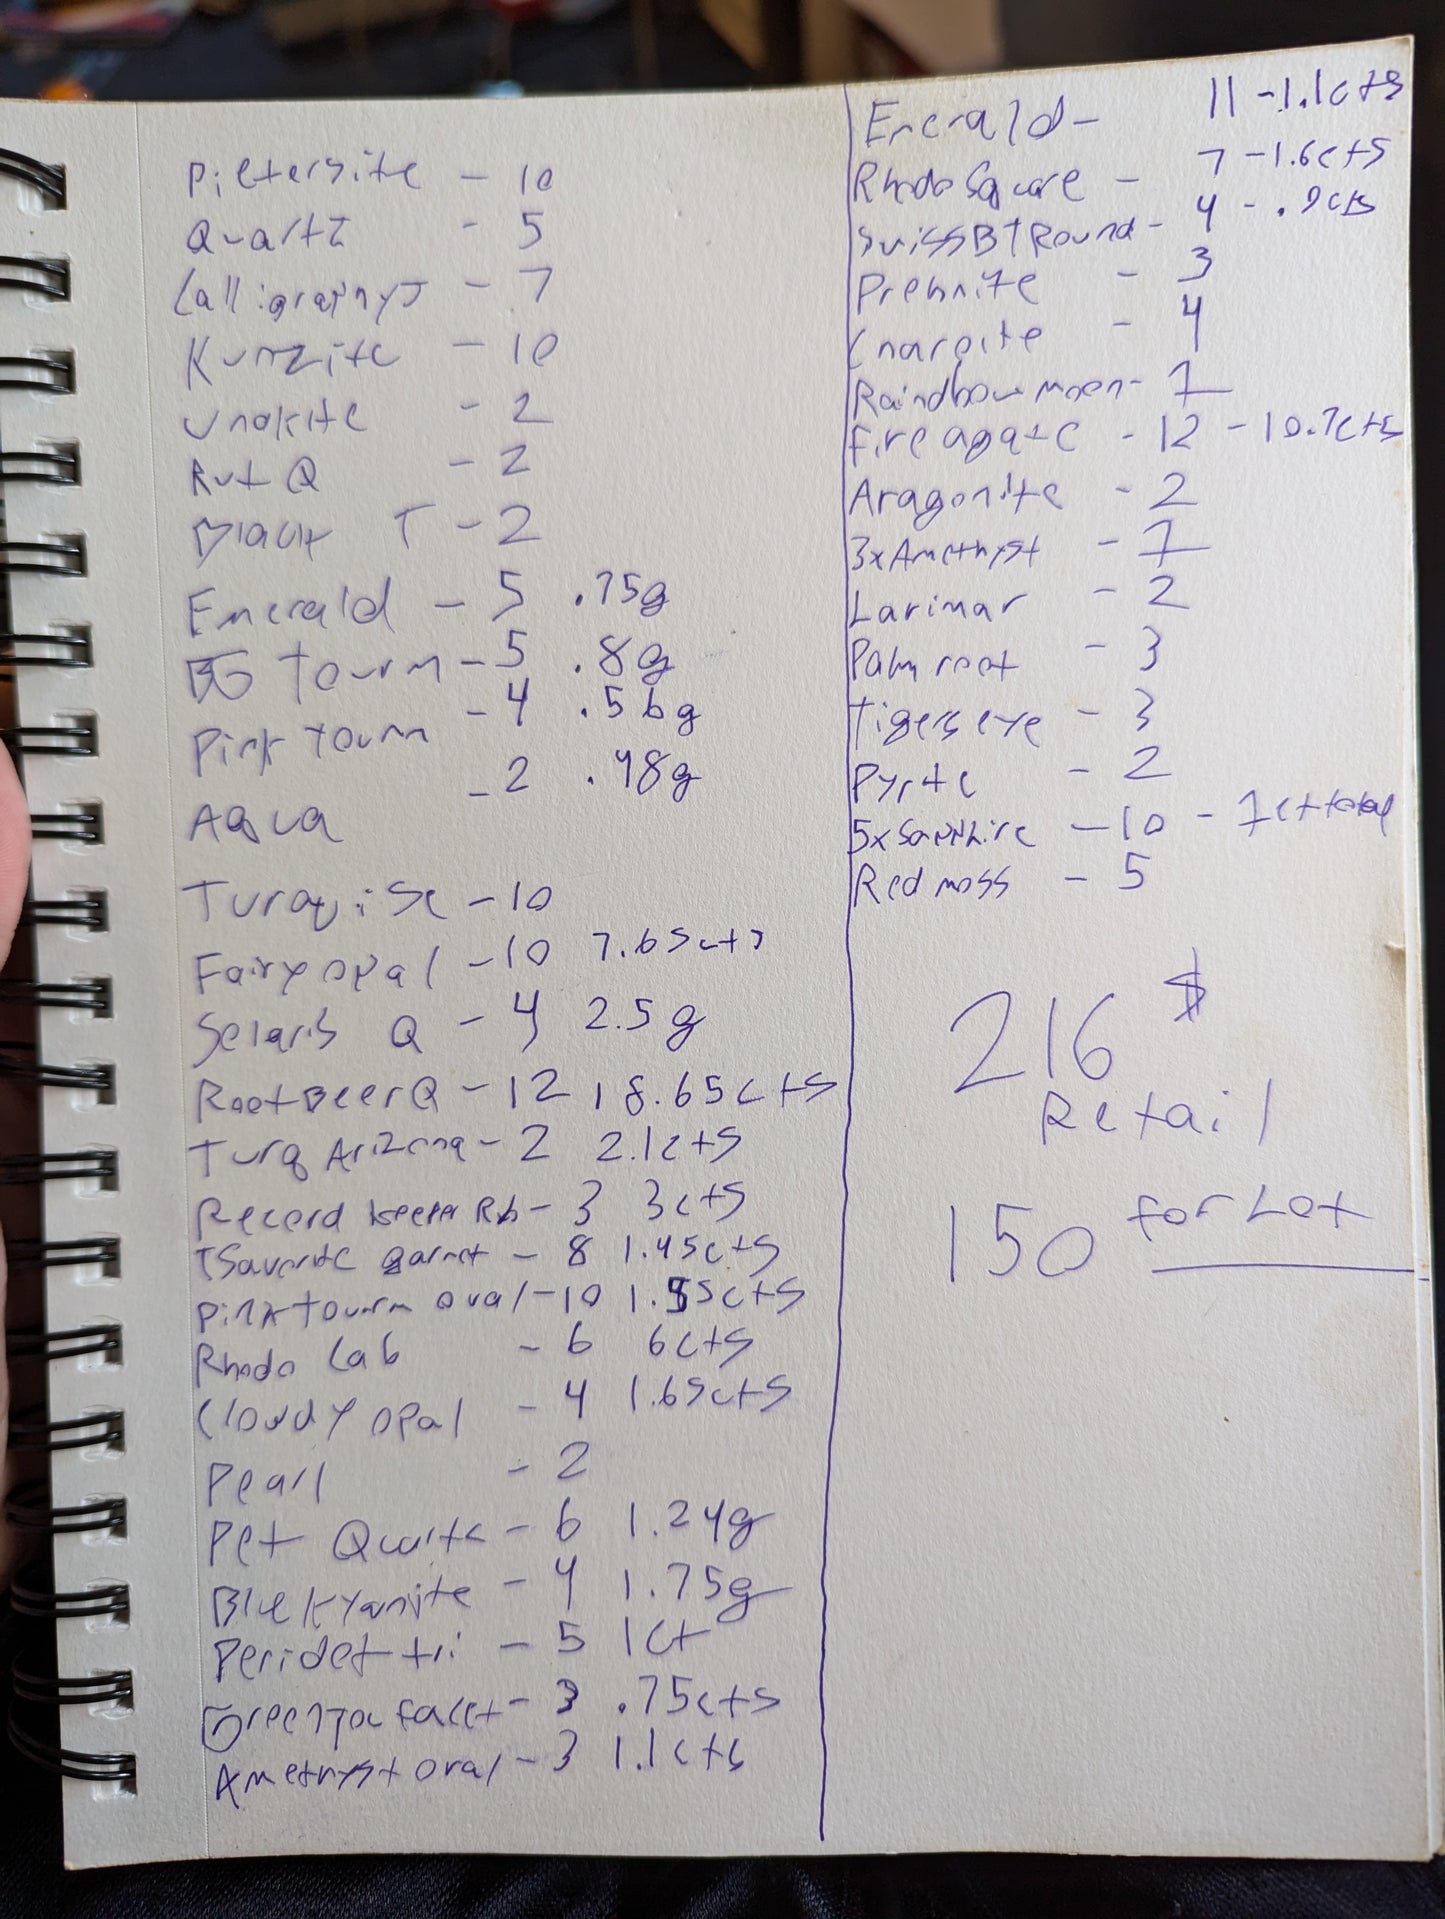 Pietersite - 10
Quartz - 5
Calligraphy J - 7
Kunzite - 10
Unakite - 2
Rut Q - 2
Black T - 2
Emerald - 5 .75g
BG Tourm - 5 .8g
Pink Tourm - 4 .56g
Aqua - 2 .48g
Turquise - 10
Fairy opal - 10 7.65cts
Q - 4 2.5g
Root Beer Q - 12 18.65cts
Turq Arizona - 2 2.1cts
Record keeper Rb - 3 3cts
Tsavorite garnet - 8 1.45cts
Pink tourm oval - 10 1.55cts
Rhodo Cab - 6 6cts
Cloudy opal - 4 1.65cts
Pearl - 2
Pet Quartz - 6 1.24g
Blue Kyanite - 4 1.75g
Peridot tri - 5 1ct
Green facet - 3 .75cts
Amethyst oval - 3 1.1cts
Emerald - 11 - 1.1cts
Rhodo Square - 7 - 1.6cts
Swiss BT Round - 4 - .9cts
Prehnite - 3
Charoite - 4
Raindbow moon - 7
Fire agate - 12 - 10.7cts
Aragonite - 2
3x Amethyst - 7
Larimar - 2
Palm root - 3
Tigers eye - 3
Pyrite - 2
5x Sapphire - 10 - 1ct total
Red moss - 5
216 $
Retail
150 for Lot